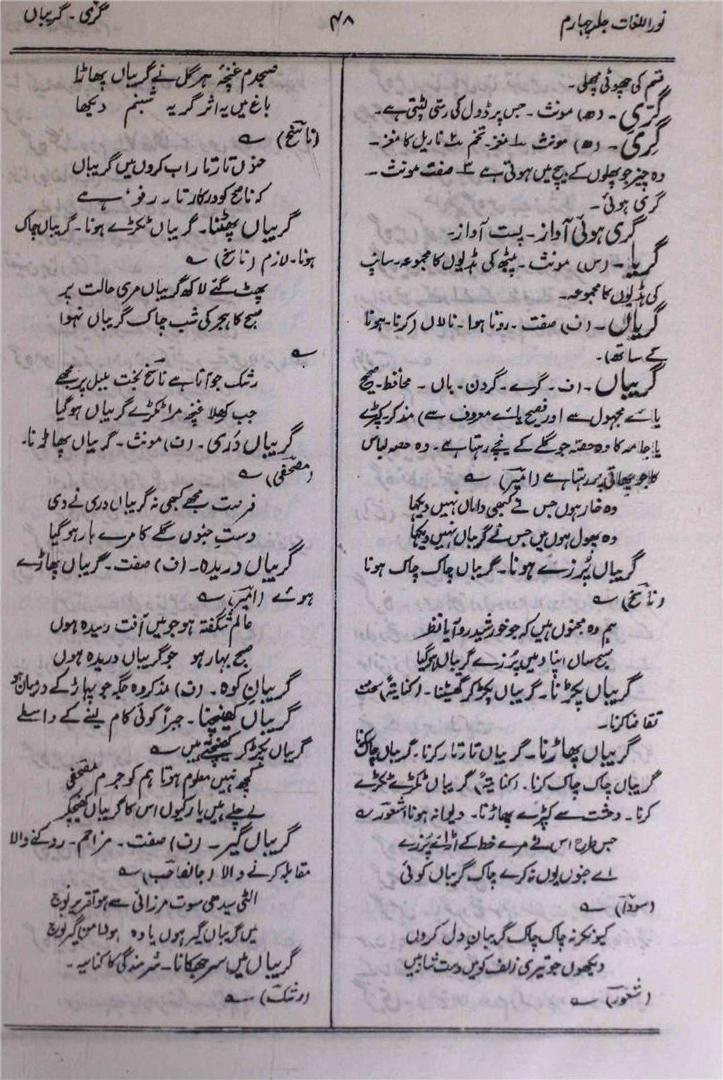 نور اللغات جلد چہارم
۴۸
گری - گریباں
قسم کی چھوٹی مچھلی۔
گرّی - (ھ) مونث - جس پر ڈول کی رسّی لپٹی ہے۔
گری - (ھ) مونث ۱ مغز - تخم ۲ ناریل کا مغز -
وہ چیز جو پھلوں کے بیچ میں ہوتی ہے ۳ صفت مونث -
گری ہوئی -
گری ہوئی آواز - پست آواز -
گریا - (س) مونث - پیٹھ کی ہڈیوں کا مجموعہ - سانپ
کی ہڈیوں کا مجموعہ -
گریاں - (ف) صفت - روتا ہوا - نالاں (کرنا - ہونا
کے ساتھ) -
گریباں - (ف - گرے - گردن - باں - محافظ - صحیح
یائے مجہول سے اور فصیح یائے معروف سے) مذکر کپڑے
یا جامہ کا وہ حصّہ جو گلے کے نیچے رہتا ہے - وہ حصہ لباس
کا جو چھاتی پر رہتا ہے (امیر) ؎
وہ خار ہوں جس نے کبھی داماں نہیں دیکھا
وہ پھول ہوں میں جس نے گریباں نہیں دیکھا
گریباں پُرزے ہونا - گریباں چاک چاک ہونا
(ناسخ) ؎
ہم وہ مجنوں ہیں کہ جو خورشید رو آیا نظر
صبح ساں اپنا وہیں پُرزے گریباں ہو گیا
گریباں پکڑنا - گریباں پکڑ کر گھسیٹنا - (کنایتہً) سخت
تقاضا کرنا -
گریباں پھاڑنا - گریباں تار تار کرنا - گریباں چاک کرنا
گریباں چاک چاک کرنا - (کنایتہً) گریباں ٹکڑے ٹکڑے
کرنا - وحشت سے کپڑے پھاڑنا - دیوانہ ہونا (شعور) ؎
جس طرح اس نے مرے خط کے اڑائے پُرزے
اے جنوں یوں نہ کرے چاک گریباں کوئی
(سودا) ؎
کیونکر نہ چاک چاک گریبانِ دل کروں
دیکھوں جو تیری زلف کو میں دست شانہ میں
(شعور) ؎
صبحدم غنچۂ ہر گل نے گریباں پھاڑا
باغ میں یہ اثر گریہ شبنم دیکھا
(ناسخ) ؎
جنوں تار تار اب کروں میں گریباں
کہ ناصح کو درکار تار رفو ہے
گریباں پھٹنا - گریباں ٹکڑے ہونا - گریباں چاک
ہونا - لازم (ناسخ) ؎
پھٹ گئے لاکھ گریباں مری حالت پر
صبح کا ہجر کی شب چاک گریباں نہوا
؎
رشک جو آتا ہے ناسخ بخت بلبل پر مجھے
جب کھلا غنچہ مرا ٹکڑے گریباں ہو گیا
گریباں دَری - (ف) مونث - گریباں پھاڑنا -
(مصحفی) ؎
فرصت مجھے کبھی نہ گریباں دری نے دی
دستِ جنوں گلے کا مرے ہار ہو گیا
گریباں دریدہ - (ف) صفت - گریباں پھاڑے
ہوئے (امیر) ؎
عالم شگفتہ ہو جو میں آفت رسیدہ ہوں
صبح بہار ہو جو گریباں دریدہ ہوں
گریبانِ کوہ - (ف) مذکر وہ جگہ جو پہاڑ کے درمیان ہو
گریباں کھینچنا - جبراً کوئی کام لینے کے واسطے
گریباں پکڑ کر کھینچتے ہیں ؎
کچھ نہیں معلوم ہوتا ہم کو جرم مصحفی
لے چلے ہیں یار کیوں اس کا گریباں کھینچکر
گریباں گیر - (ف) صفت - مزاحم - روکنے والا
مقابلہ کرنے والا (جانصاحب) ؎
الٹی سیدھی سوت مرزائی سے ہو آقر پر نوچ
میں گریباں گیر ہوں یا وہ ہو دامن گیر نوچ
گریباں میں سر جھکانا - شرمندگی کا کنایہ -
(رشک) ؎